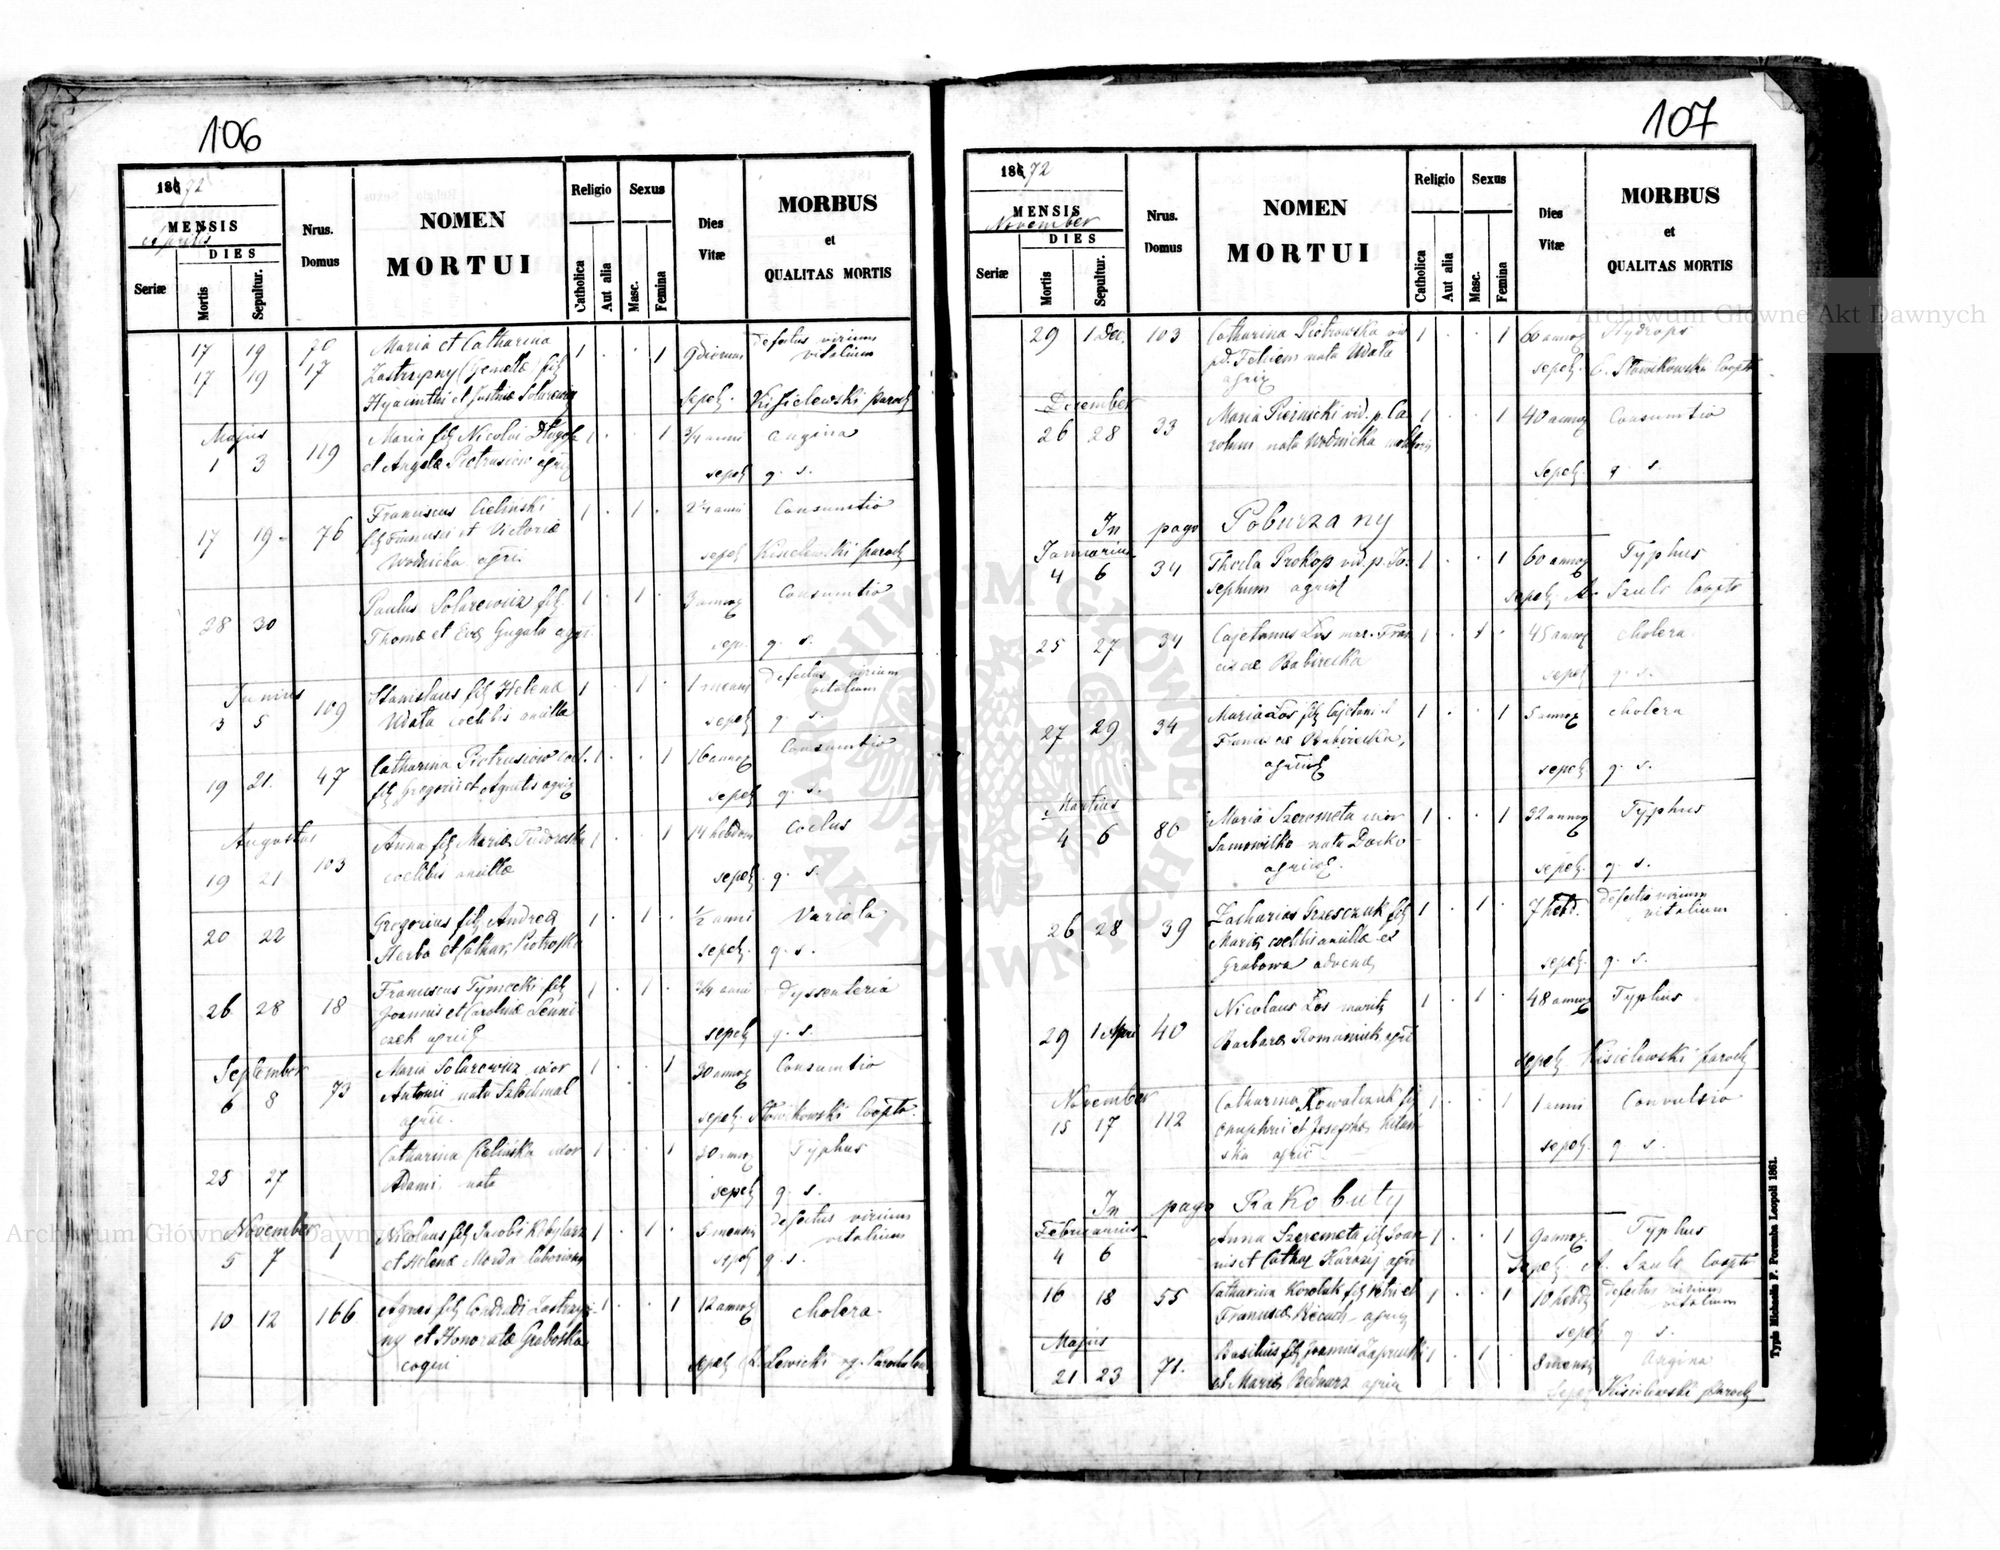 106
1872
MENSIS
Aprilis
DIES
Seriæ
Mortis
Sepultur.
Nrus.
Domus
NOMEN
MORTUI
Religio
Catholica
Aut alia
Sexus
Masc.
Femina
Dies
Vitæ
MORBUS
et
QUALITAS MORTIS
17 19 70 Maria et Catharina 1 . . 1 9 dierum Defectus virium vitalium
17 19 17 Zastrzyzny (Gemellæ) filæ
Hyacinthi et Justinæ Solarewicz sepel. Kisielewski Paroch
Majus
1 3 119 Maria filia Nicolai Długosz 1 . . 1 3/4 anni angina
et Angelæ Pietrusiow agric. sepel. q. s.
17 19 76 Franciscus Cieliński 1 . 1 . 2 1/4 anni Consumtio
et Victoriæ
Wodnicka agric. sepel. Kisielewski paroch
28 30 Paulus Solarewicz fil. 1 . 1 . 3 annor. Consumtio
Thomæ et Evæ Gugała agric. sep. q. s.
Junius
3 5 109 Stanislaus fil. Helenæ 1 . 1 . 1 mensis Defectus virium vitalium
Udała coelibis ancillæ sepel. q. s.
19 21. 47 Catharina Pietrusiow coel. 1 . . 1 16 annor. Consumtio
fil. Gregorii et Agnetis agric. sepel. q. s.
Augustus
19 21 103 Anna fil. Mariæ 1 . . 1 14 hebdom. Coelus
coelibis ancillæ sepel. q. s.
20 22 Gregorius fil. Andreæ 1 . 1 . 1/2 anni Variola
Harba et Cathar. sepel. q. s.
26 28 18 Franciscus Tymecki fil. 1 . 1 . 3/4 anni Dyssenteria
Joannis et Carolinæ
agric. sepel. q. s.
September
6 8 73 Maria Solarewicz uxor 1 . . 1 30 annor. Consumtio
Antonii nata Szlochmal
agric. sepel. Słowikowski Coopr.
25 27 Catharina Cielińska uxor 1 . . 1 20 annor. Typhus
Adami nata sepel. q. s.
November
5 7 1 Nicolaus fil. Jacobi Kobylarz 1 . 1 . 5 mensium defectus virium vitalium
et Helenæ Morda sepel. q. s.
10 12 166 Agnes fil. Condradi 1 . . 1 12 annor. Cholera.
et Honoratæ Graboska
coqui sepel. Lewicki
107
1872
MENSIS
November
DIES
Seriæ
Mortis
Sepultur.
Nrus.
Domus
NOMEN
MORTUI
Religio
Catholica
Aut alia
Sexus
Masc.
Femina
Dies
Vitæ
MORBUS
et
QUALITAS MORTIS
29 1 Dec. 103 Catharina Piotrowska vid. 1 . . 1 60 annor. Hydrops
p. Felicem nata Udała
agric. sepel. Słowikowski Coopr.
December
26 28 33 Maria Piernicki vid. p. Ca- 1 . . 1 40 annor. Consumtio
rolum nata Wodnicka
sepel. q. s.
In pago Poburzany
Januarius
4 6 34 Thecla Prokop vid. p. Jo- 1 . . 1 60 annor. Typhus
sephum agricol. sepel. A. Szulc Coopr.
25 27 34 Cajetanus Łos mar. Fran- 1 . 1 . 45 annor. Cholera
ciscæ Babirecka sepel. q. s.
27 29 34 Maria Łos fil. Cajetani et 1 . . 1 5 annor. Cholera
Franciscæ Babirecka,
agricol. sepel. q. s.
Martius
4 6 80 Maria Szeremeta uxor 1 . . 1 32 annor. Typhus
Samowilko nata Dacko
agricol. sepel. q. s.
26 28 39 Zacharias Grzesczuk fil. 1 . 1 . 7 hebd. Defectus virium vitalium
Mariæ coelibis ancillæ ex
Grabowa advenæ sepel. q. s.
29 1 Apri. 40 Nicolaus Łos marit. 1 . 1 . 48 annor. Typhus
Barbaræ Romaniuk agric. sepel. Kisielewski paroch
November
15 17 112 Catharina Kowalczuk fil. 1 . . 1 1 anni Convulsio
Onuphrii et Josephæ
agric. sepel. q. s.
In pago Rakobuty
Februarius
4 6 Anna Szeremeta fil. Joan- 1 . . 1 9 annor. Typhus
nis et Cathar. agric. Sepel. A. Szulc Coopr.
16 18 55 Catharina fil. Petri et 1 . . 1 10 hebd. Defectus virium vitalium
Franciscæ agric. sepel. q. s.
Majus
21 23 71. Basilius fil. Joannis 1 . 1 8 mensium Angina
et Mariæ Bednarz agric. Sepel. Kisielewski paroch
Typis Michaelis F. Poremba Leopoli 1861.
Archiwum Główne Akt Dawnych
Archiwum Główne Akt Dawnych
ARCHIWUM GŁÓWNE AKT DAWNYCH